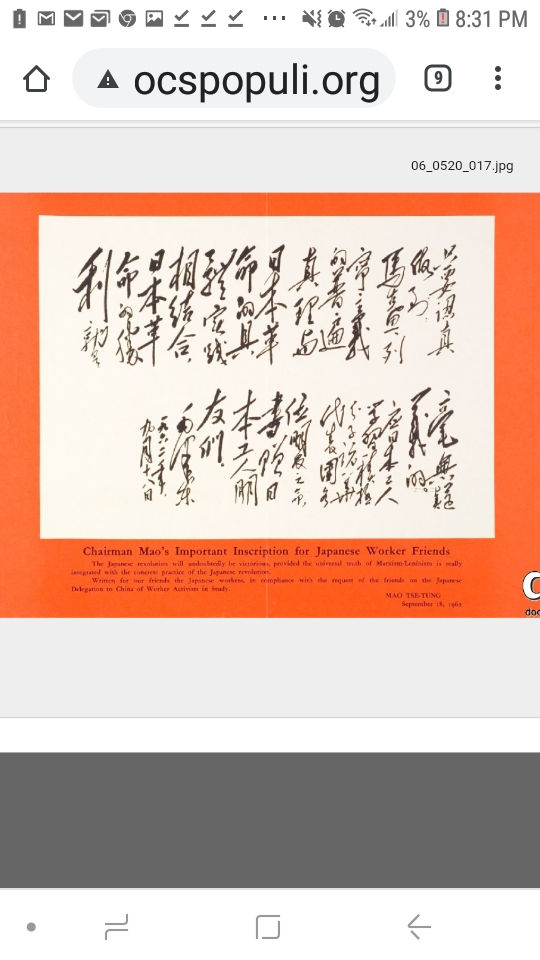 3% 8:31 PM
ocspopuli.org
9
06_0520_017.jpg
只要認真
做到
馬克思列
寧主義
的普遍
真理与
日本革
命的具
體实践
相結合,
日本革
命的勝
利就是
毫無疑
義的。
应日本工人
学習積極
分子访華
代表团各
位朋友之命,
書贈日
本工人朋
友们。
毛泽东
一九六二年
九月十八日
Chairman Mao's Important Inscription for Japanese Worker Friends
The Japanese revolution will undoubtedly be victorious, provided the universal truth of Marxism-Leninism is really
integrated with the concrete practice of the Japanese revolution.
Written for our friends the Japanese workers, in compliance with the request of the friends on the Japanese
Delegation to China of Worker Activists in Study.
MAO TSE-TUNG
September 18, 1962